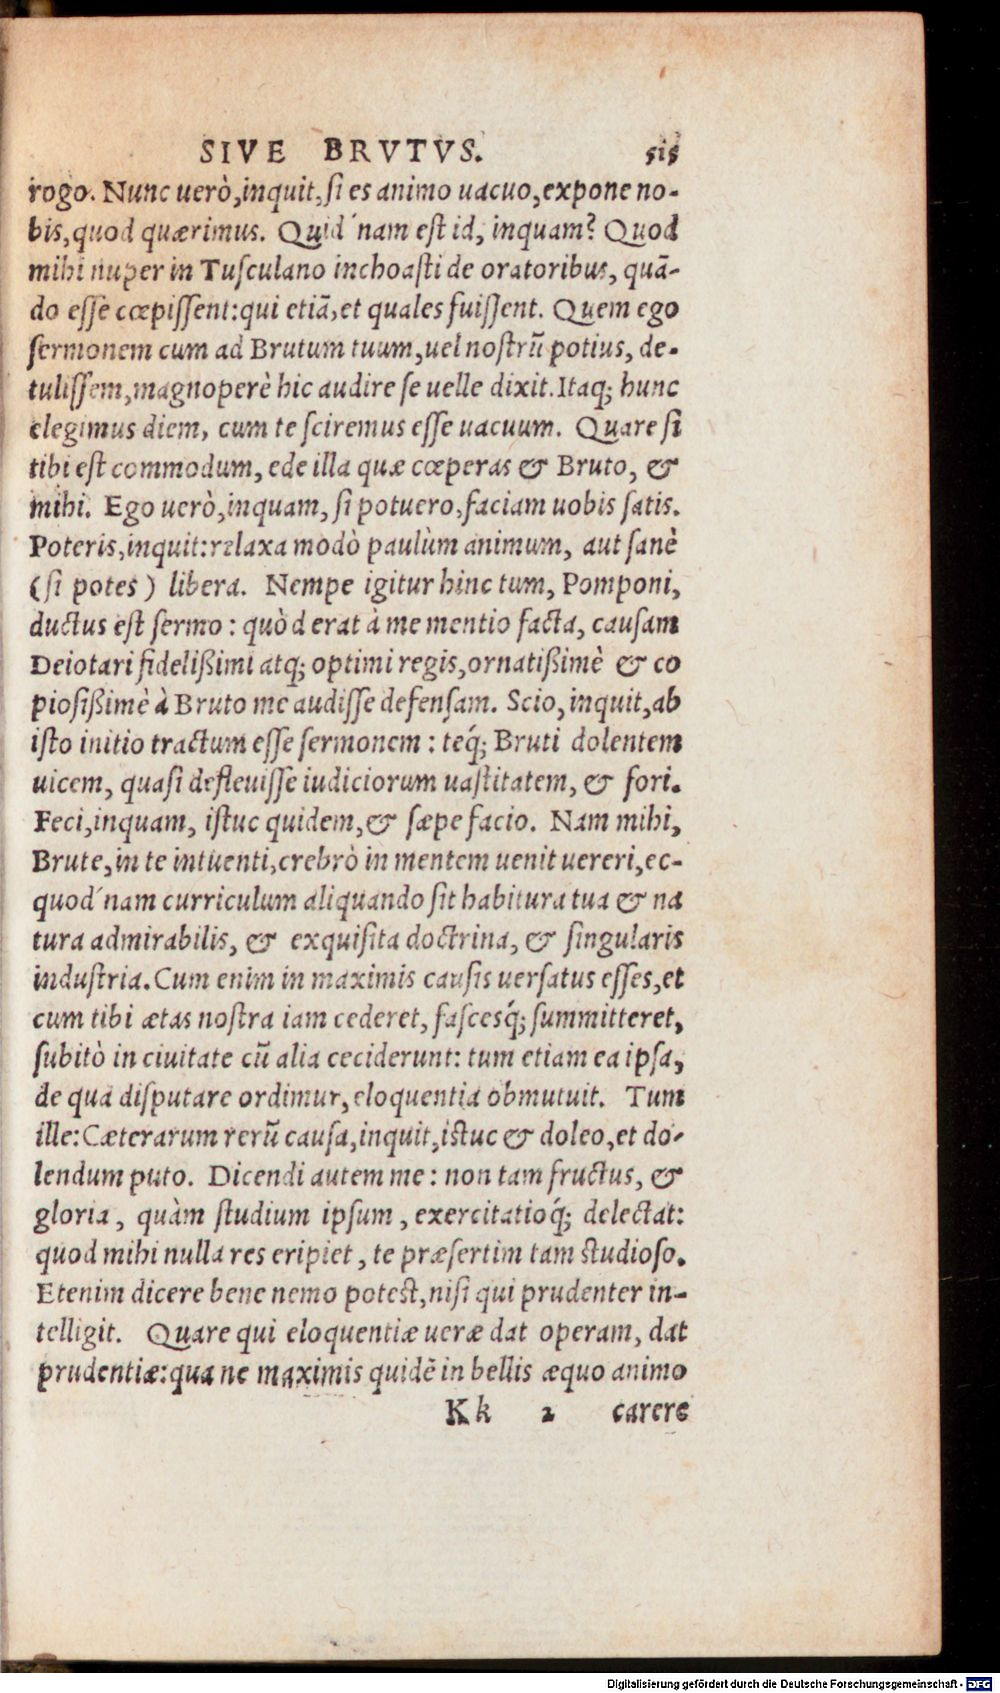 SIVE BRVTVS. 515
rogo. Nunc uerò, inquit, ſi es animo uacuo, expone no-
bis, quod quærimus. Quid´nam eſt id, inquam? Quod
mihi nuper in Tuſculano inchoaſti de oratoribus, quã-
do eſſe cœpiſſent: qui etiã, et quales fuiſſent. Quem ego
ſermonem cum ad Brutum tuum, uel noſtrũ potius, de-
tuliſſem, magnoperè hic audire ſe uelle dixit. Itaq; hunc
elegimus diem, cum te ſciremus eſſe uacuum. Quare ſi
tibi eſt commodum, ede illa quæ cœperas & Bruto, &
mihi. Ego uerò, inquam, ſi potuero, faciam uobis ſatis.
Poteris, inquit: relaxa modò paulùm animum, aut ſanè
(ſi potes) libera. Nempe igitur hinc tum, Pomponi,
ductus eſt ſermo: quòd erat à me mentio facta, cauſam
Deiotari fidelißimi atq; optimi regis, ornatißimè & co
pioſißimè à Bruto me audiſſe defenſam. Scio, inquit, ab
iſto initio tractum eſſe ſermonem: teq́; Bruti dolentem
uicem, quaſi defleuiſſe iudiciorum uaſtitatem, & fori.
Feci, inquam, iſtuc quidem, & ſæpe facio. Nam mihi,
Brute, in te intuenti, crebrò in mentem uenit uereri, ec-
quod´nam curriculum aliquando ſit habitura tua & na
tura admirabilis, & exquiſita doctrina, & ſingularis
induſtria. Cum enim in maximis cauſis uerſatus eſſes, et
cum tibi ætas noſtra iam cederet, faſcesq́; ſummitteret,
ſubitò in ciuitate cũ alia ceciderunt: tum etiam ea ipſa,
de qua diſputare ordimur, eloquentia obmutuit. Tum
ille: Cæterarum rerũ cauſa, inquit, iſtuc & doleo, et do-
lendum puto. Dicendi autem me: non tam fructus, &
gloria, quàm ſtudium ipſum, exercitatioq́; delectat:
quod mihi nulla res eripiet, te præſertim tam ſtudioſo.
Etenim dicere bene nemo poteſt, niſi qui prudenter in-
telligit. Quare qui eloquentiæ ueræ dat operam, dat
prudentiæ: qua ne maximis quidẽ in bellis æquo animo
Kk 2 carere
Digitalisierung gefördert durch die Deutsche Forschungsgemeinschaft - DFG